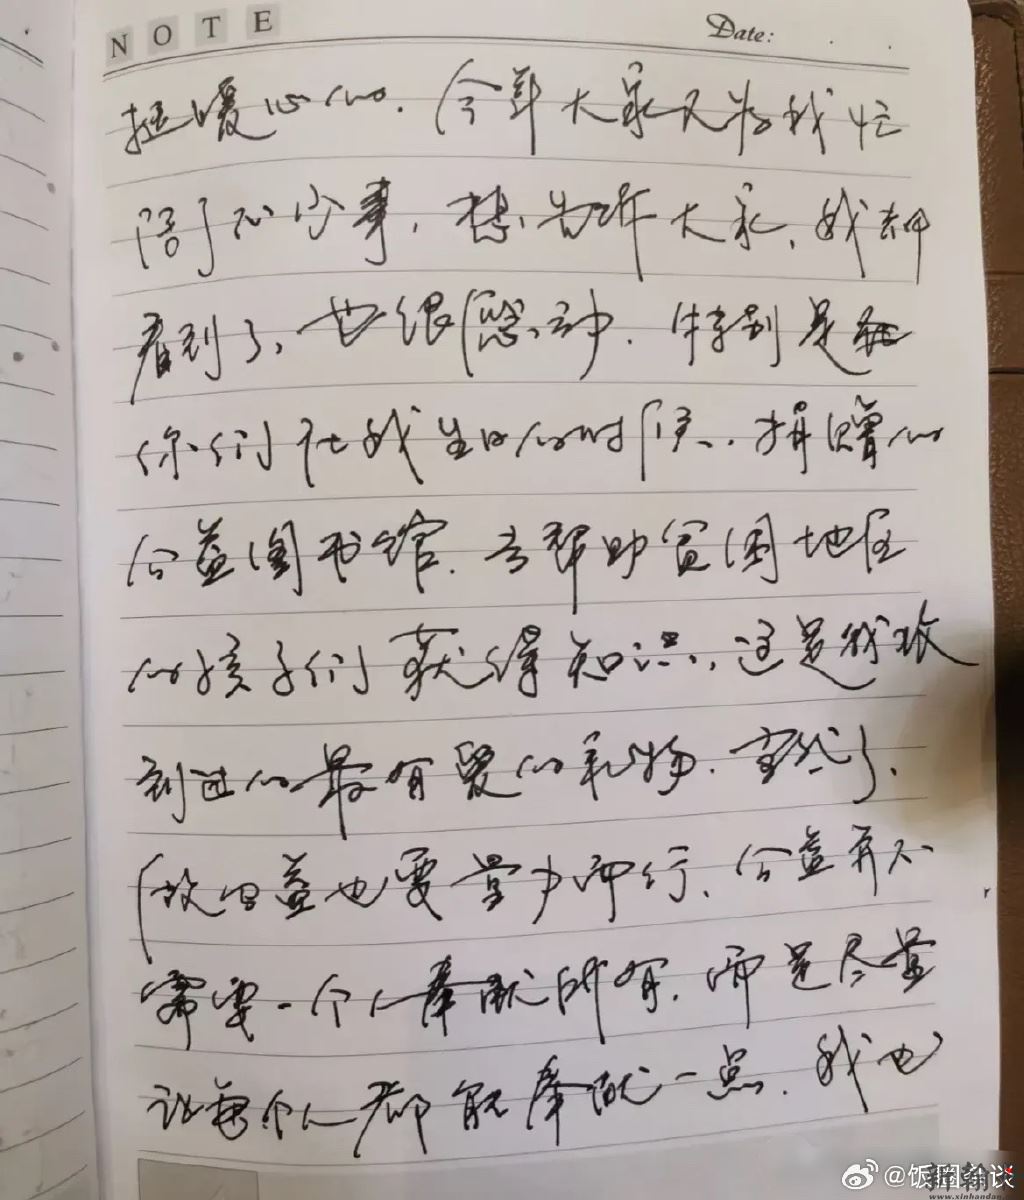 NOTE
Date:
挺暖心的. 今年大家又为我忙
了不少事, 想告诉大家, 我都
看到了, 也很感动. 特别是
你们在我生日的时候, 捐赠的
公益图书馆. 去帮助贫困地区
的孩子们获得知识, 这是我收
到过的最有爱的礼物. 当然了,
做公益也要量力而行, 公益并不
需要一个人奉献所有, 而是尽量
让每个人都能奉献一点. 我也
@饭圈
www.xinhandan